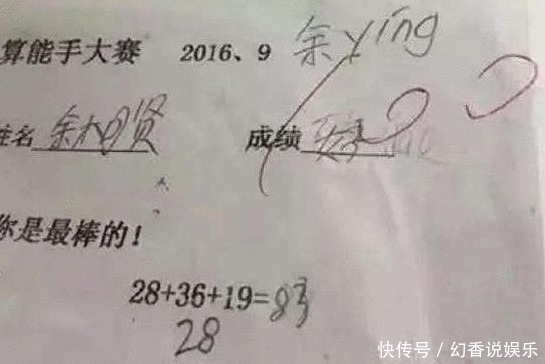 算能手大赛 2016、9 余ying
姓名 余 贤 成绩
你是最棒的!
28+36+19=83
28
快传号 / 幻香说娱乐